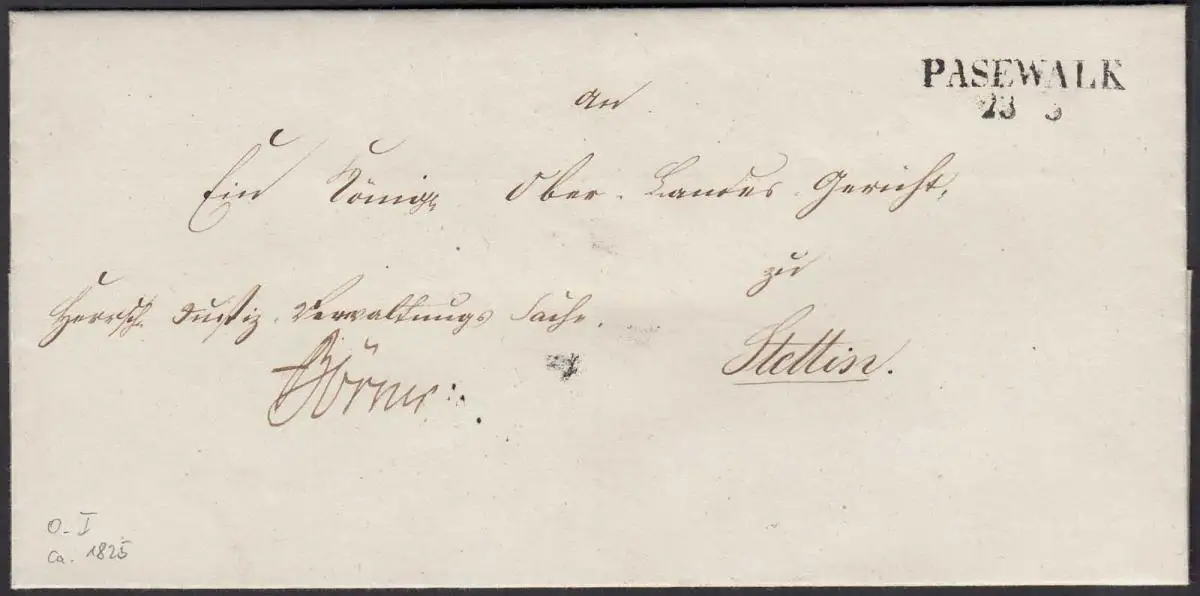 PASEWALK
23 3
An
Ein Königl. Ober-Landes-Gericht,
zu
Herrsch. Justiz-Verwaltungs Sache.
Stettin.
O. I
ca. 1825